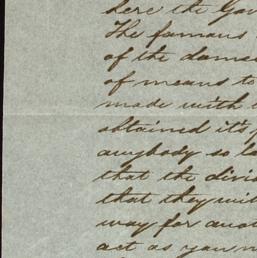 here the Gov
The famous
of the dames
of means to
made with t
obtained its p
anybody so la
that the divis
that they wit
way for anot
act as you m